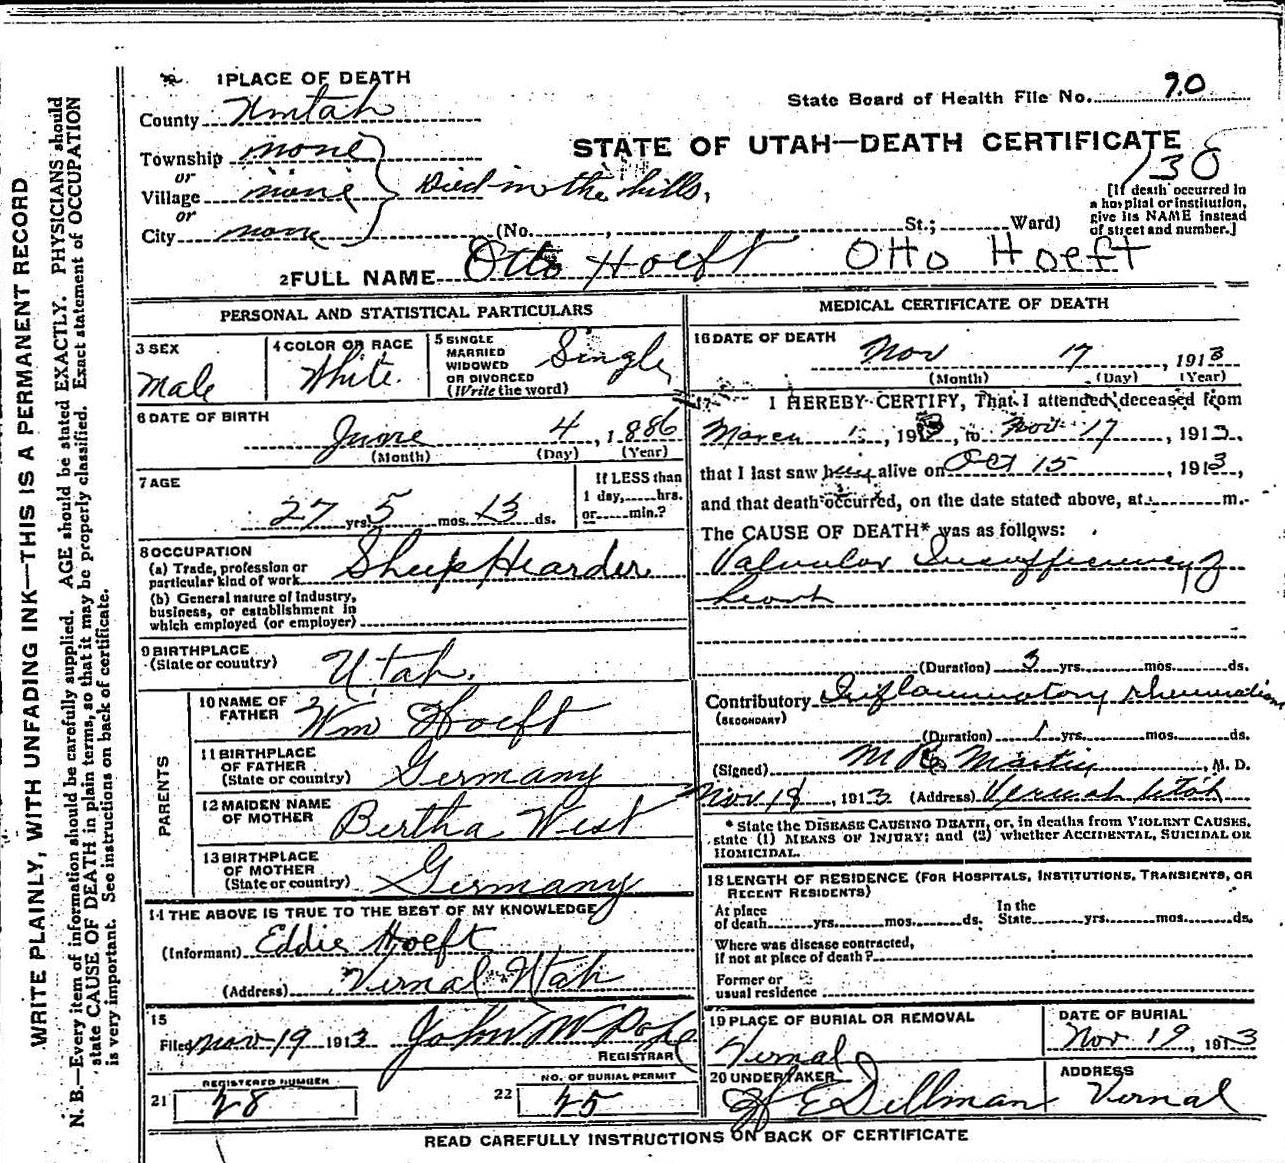 1 PLACE OF DEATH
State Board of Health File No. 70
County Uintah
STATE OF UTAH—DEATH CERTIFICATE
Township none
or
Village none Died in the hills,
or
City none (No. , St.; Ward)
[If death occurred in
a hospital or institution,
give its NAME instead
of street and number.]
2 FULL NAME Otto Hoeft Otto Hoeft
PERSONAL AND STATISTICAL PARTICULARS
3 SEX
Male
4 COLOR OR RACE
White.
5 SINGLE
MARRIED
WIDOWED
OR DIVORCED
(Write the word)
Single
6 DATE OF BIRTH
June 4, 1886
(Month) (Day) (Year)
7 AGE
27 yrs. 5 mos. 13 ds.
If LESS than
1 day, hrs.
or min.?
8 OCCUPATION
(a) Trade, profession or
particular kind of work Sheep Hearder
(b) General nature of Industry,
business, or establishment in
which employed (or employer)
9 BIRTHPLACE
(State or country) Utah.
PARENTS
10 NAME OF
FATHER Wm Hoeft
11 BIRTHPLACE
OF FATHER
(State or country) Germany
12 MAIDEN NAME
OF MOTHER Bertha West
13 BIRTHPLACE
OF MOTHER
(State or country) Germany
14 THE ABOVE IS TRUE TO THE BEST OF MY KNOWLEDGE
(Informant) Eddie Hoeft
(Address) Vernal Utah
15
Filed Nov 19 1913 John M Pope
REGISTRAR
REGISTERED NUMBER
21 28
NO. OF BURIAL PERMIT
22 25
MEDICAL CERTIFICATE OF DEATH
16 DATE OF DEATH
Nov 17, 1913
(Month) (Day) (Year)
17 I HEREBY CERTIFY, That I attended deceased from
March 1, 1913, to Nov 17, 1913,
that I last saw him alive on Oct 15, 1913,
and that death occurred, on the date stated above, at m.
The CAUSE OF DEATH* was as follows:
Valvular Insufficiency of
heart
(Duration) 3 yrs. mos. ds.
Contributory Inflammatory rheumatism
(SECONDARY)
(Duration) 1 yrs. mos. ds.
(Signed) Martin, M. D.
Nov 18, 1913 (Address) Vernal Utah
* State the DISEASE CAUSING DEATH, or, in deaths from VIOLENT CAUSES,
state (1) MEANS OF INJURY; and (2) whether ACCIDENTAL, SUICIDAL OR
HOMICIDAL.
18 LENGTH OF RESIDENCE (FOR HOSPITALS, INSTITUTIONS, TRANSIENTS, OR
RECENT RESIDENTS)
At place
of death yrs. mos. ds.
In the
State yrs. mos. ds.
Where was disease contracted,
if not at place of death?
Former or
usual residence
19 PLACE OF BURIAL OR REMOVAL
Vernal
DATE OF BURIAL
Nov. 19, 1913
20 UNDERTAKER
E Dillman
ADDRESS
Vernal
READ CAREFULLY INSTRUCTIONS ON BACK OF CERTIFICATE
WRITE PLAINLY, WITH UNFADING INK—THIS IS A PERMANENT RECORD
N. B.—Every item of information should be carefully supplied. AGE should be stated EXACTLY. PHYSICIANS should
state CAUSE OF DEATH in plain terms, so that it may be properly classified. Exact statement of OCCUPATION
is very important. See instructions on back of certificate.